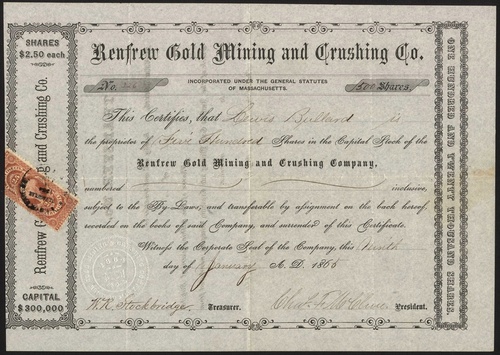 SHARES
$2.50 each
Renfrew Gold Mining and Crushing Co.
CAPITAL
$300,000
Renfrew Gold Mining and Crushing Co.
No.
INCORPORATED UNDER THE GENERAL STATUTES
OF MASSACHUSETTS.
500 Shares.
This Certifies, that Lewis Bullard is
the proprietor of Five Hundred Shares in the Capital Stock of the
Renfrew Gold Mining and Crushing Company,
numbered inclusive,
subject to the By-Laws, and transferable by assignment on the back hereof,
recorded on the books of said Company, and surrender of this Certificate.
Witness the Corporate Seal of the Company, this
day of January A. D. 1866
Stockbridge, Treasurer. President.
ONE HUNDRED AND TWENTY THOUSAND SHARES.